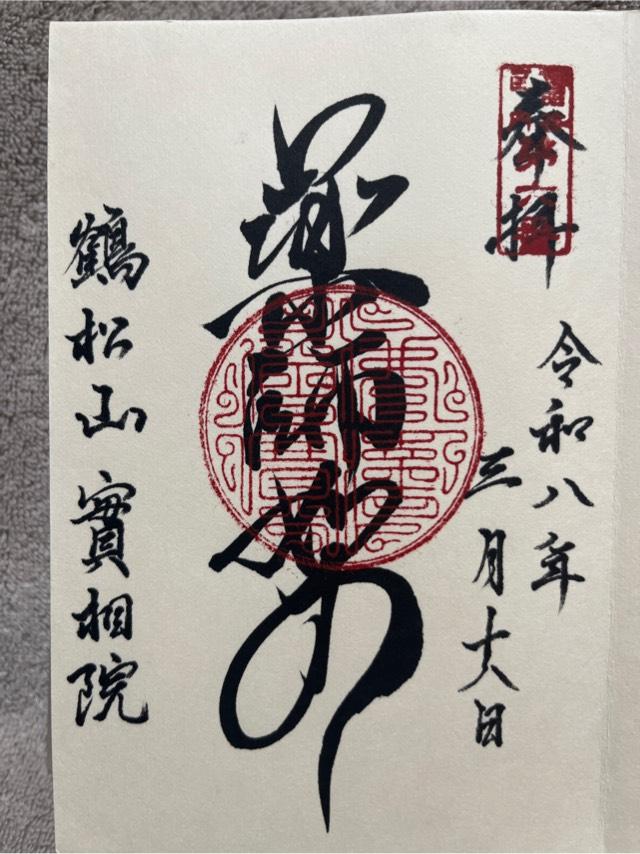 奉拝
令和八年
三月十八日
藥師如来
鶴松山 實相院